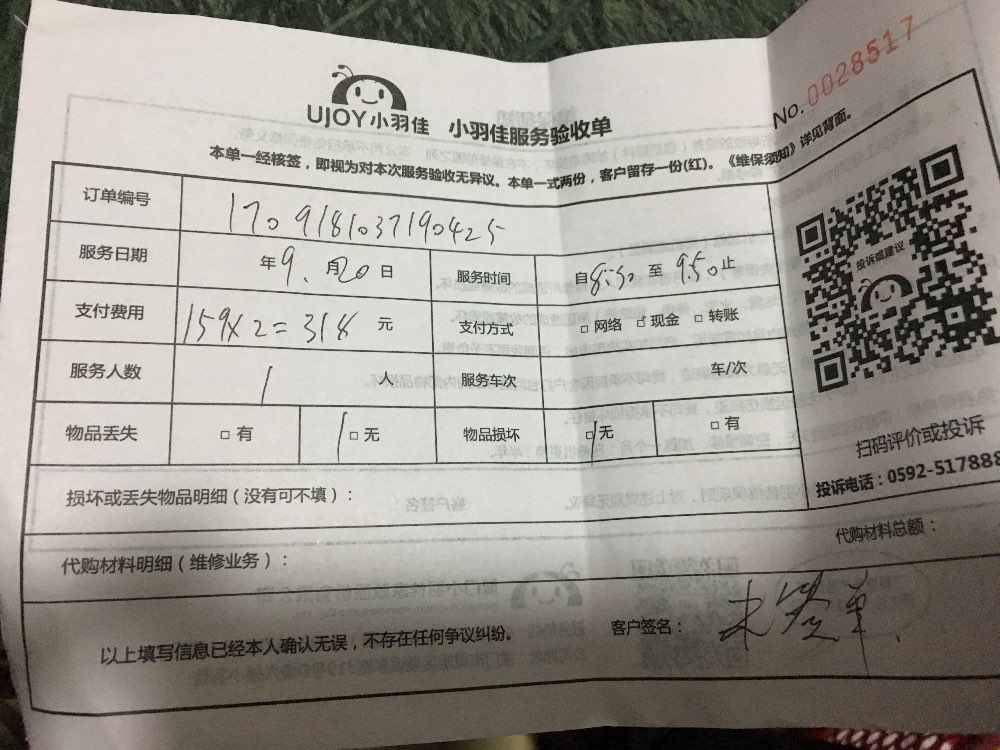 UJOY小羽佳 小羽佳服务验收单
No. 0028517
本单一经核签，即视为对本次服务验收无异议。本单一式两份，客户留存一份(红)。《维保须知》详见背面。
订单编号 1709181037190425
服务日期 年9.月20日 服务时间 自8:30至9.50止
支付费用 159X2=318 元 支付方式 □网络 □现金 □转账
服务人数 1 人 服务车次 车/次
物品丢失 □有 □无 物品损坏 □无 □有
损坏或丢失物品明细（没有可不填）：
代购材料明细（维修业务）： 代购材料总额：
以上填写信息已经本人确认无误，不存在任何争议纠纷。 客户签名：
投诉或建议
扫码评价或投诉
投诉电话：0592-517888